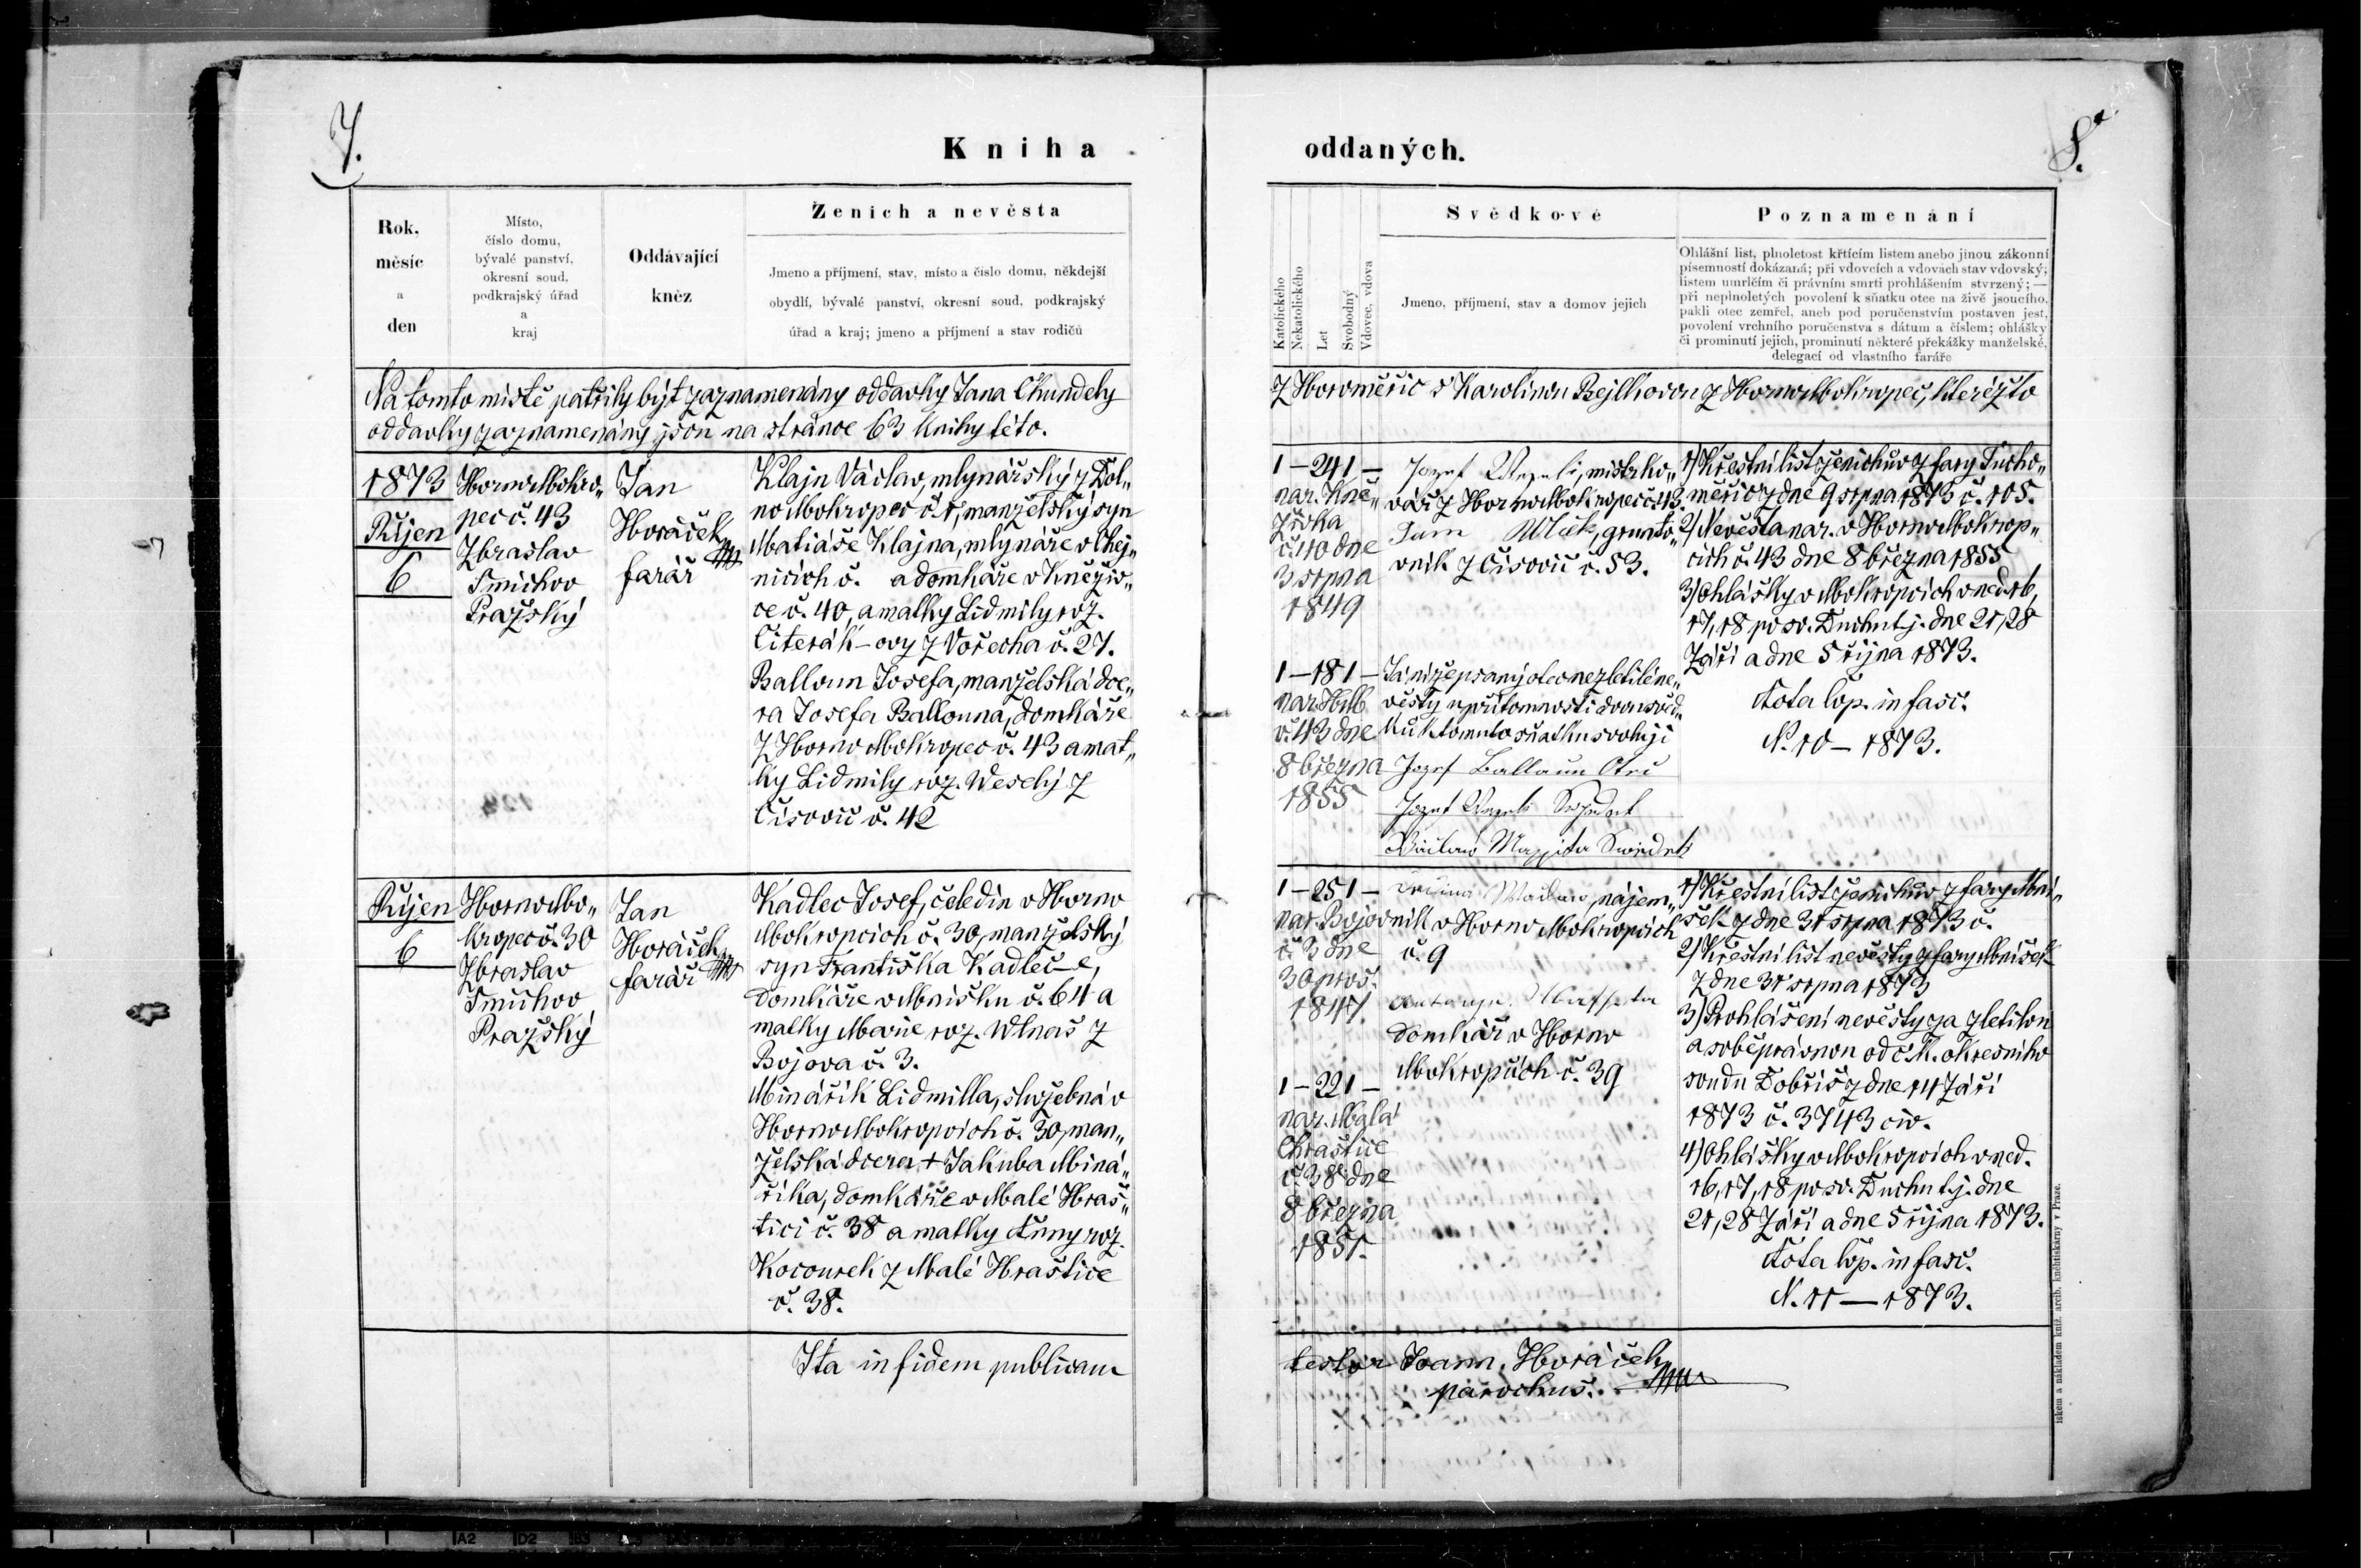 7.
Kniha
Rok,
měsíc
a
den
Místo,
číslo domu,
bývalé panství,
okresní soud,
podkrajský úřad
a
kraj
Oddávající
kněz
Ženich a nevěsta
Jmeno a příjmení, stav, místo a číslo domu, někdejší
obydlí, bývalé panství, okresní soud, podkrajský
úřad a kraj; jmeno a příjmení a stav rodičů
Na tomto místě patřily být zaznamenány oddavky Jana Chundely
oddavky zaznamenány jsou na stránce 63 knihy této.
1873
Říjen
6
Hornomokro„
pec č. 43
Zbraslav
Smíchov
Pražský
Jan
Horáček
farář
Klajn Václav, mlynářský z Dol„
nomokropec č. 1, manželský syn
Matiáše Klajna, mlynáře v Chej„
nicích č. a domkáře v Kněživ„
ce č. 40, a matky Lidmily roz.
Citerák-ovy z Vořecha č. 27.
Balloun Josefa, manželská dce„
ra Josefa Ballouna, domkáře
z Hornomokropec č. 43 a mat„
ky Lidmily roz. Weselý z
Čisovic č. 42
Říjen
6
Hornomo„
kropec č. 30
Zbraslav
Smíchov
Pražský
Jan
Horáček
farář
Kadlec Josef, čeledín v Horno
Mokropcích č. 30, manželský
syn Františka Kadlec-e,
domkáře v Mníšku č. 64 a
matky Marie roz. Wlnas z
Bojova č. 3.
Minářík Lidmilla, služebná v
Hornomokropcích č. 30, man„
želská dcera + Jakuba Miná„
říka, domkáře v Malé Hraš„
tici č. 38 a matky Anny roz.
Kocourek z Malé Hraštice
č. 38.
Ita in fidem publicam
oddaných.
8.
Katolického
Nekatolického
Let
Svobodný
Vdovec, vdova
Svědkové
Jmeno, příjmení, stav a domov jejich
Poznamenání
Ohlášní list, plnoletost křtícím listem anebo jinou zákonní
písemností dokázaná; při vdovcích a vdovách stav vdovský,
listem umrlčím či právním smrti prohlášením stvrzený; —
při neplnoletých povolení k sňatku otce na živě jsoucího,
pakli otec zemřel, aneb pod poručenstvím postaven jest,
povolení vrchního poručenstva s dátum a číslem; ohlášky
či prominutí jejich, prominutí některé překážky manželské,
delegací od vlastního faráře
z Horoměřic s Karolinou Bejlkovou z Hornomokropec, kteréžto
1 — 24 1 —
nar. Kně„
živka
č. 40 dne
3 srpna
1849
Jozef, mistr ko„
vář z Hornomokropec č. 43.
Jan Wlček, grunto„
vník z Čisovic č. 53.
1) Křestní list ženichův z fary Tucho„
měřic z dne 9 srpna 1873 č. 105.
2) Nevěsta nar. v Hornomokrop„
cích č. 43 dne 8 března 1855
3) Ohlášky v Mokropcích v ned. 16,
17, 18 po sv. Duchu t.j. dne 21, 28
Září a dne 5 října 1873.
Tota cop. in fasc.
N. 10 — 1873.
1 — 18 1 —
nar. HM
č. 43 dne
8 března
1855
Já níže psaný otec nezletilé ne„
věsty u přítomnosti dvou svěd„
ků k tomuto sňatku svoluji
Jozef Balloun Otec
Jozef Swědek
Wáclaw Mazzita Swědek
1 — 25 1 —
nar. Bojov
č. 3 dne
30 pros.
1847
nájem„
ník v Horno Mokropcích
č. 9
domkář v Horno
Mokropcích č. 39
1) Křestní list ženichův z fary Mní„
šek z dne 31 srpna 1873 č.
2) Křestní list nevěsty z fary Mníšek
z dne 31 srpna 1873
3) Prohlášení nevěsty za zletilou
a svéprávnou od c. k. okresního
soudu Dobříš z dne 14 Září
1873 č. 3743 civ.
4) Ohlášky v Mokropcích v ned.
16, 17, 18 po sv. Duchu t.j. dne
21, 28 Září a dne 5 října 1873.
Tota cop. in fasc.
N. 11 — 1873.
1 — 22 1 —
nar. Malá
Chraštice
č. 38 dne
8 března
1851.
testor Joann. Horáček
parochus.